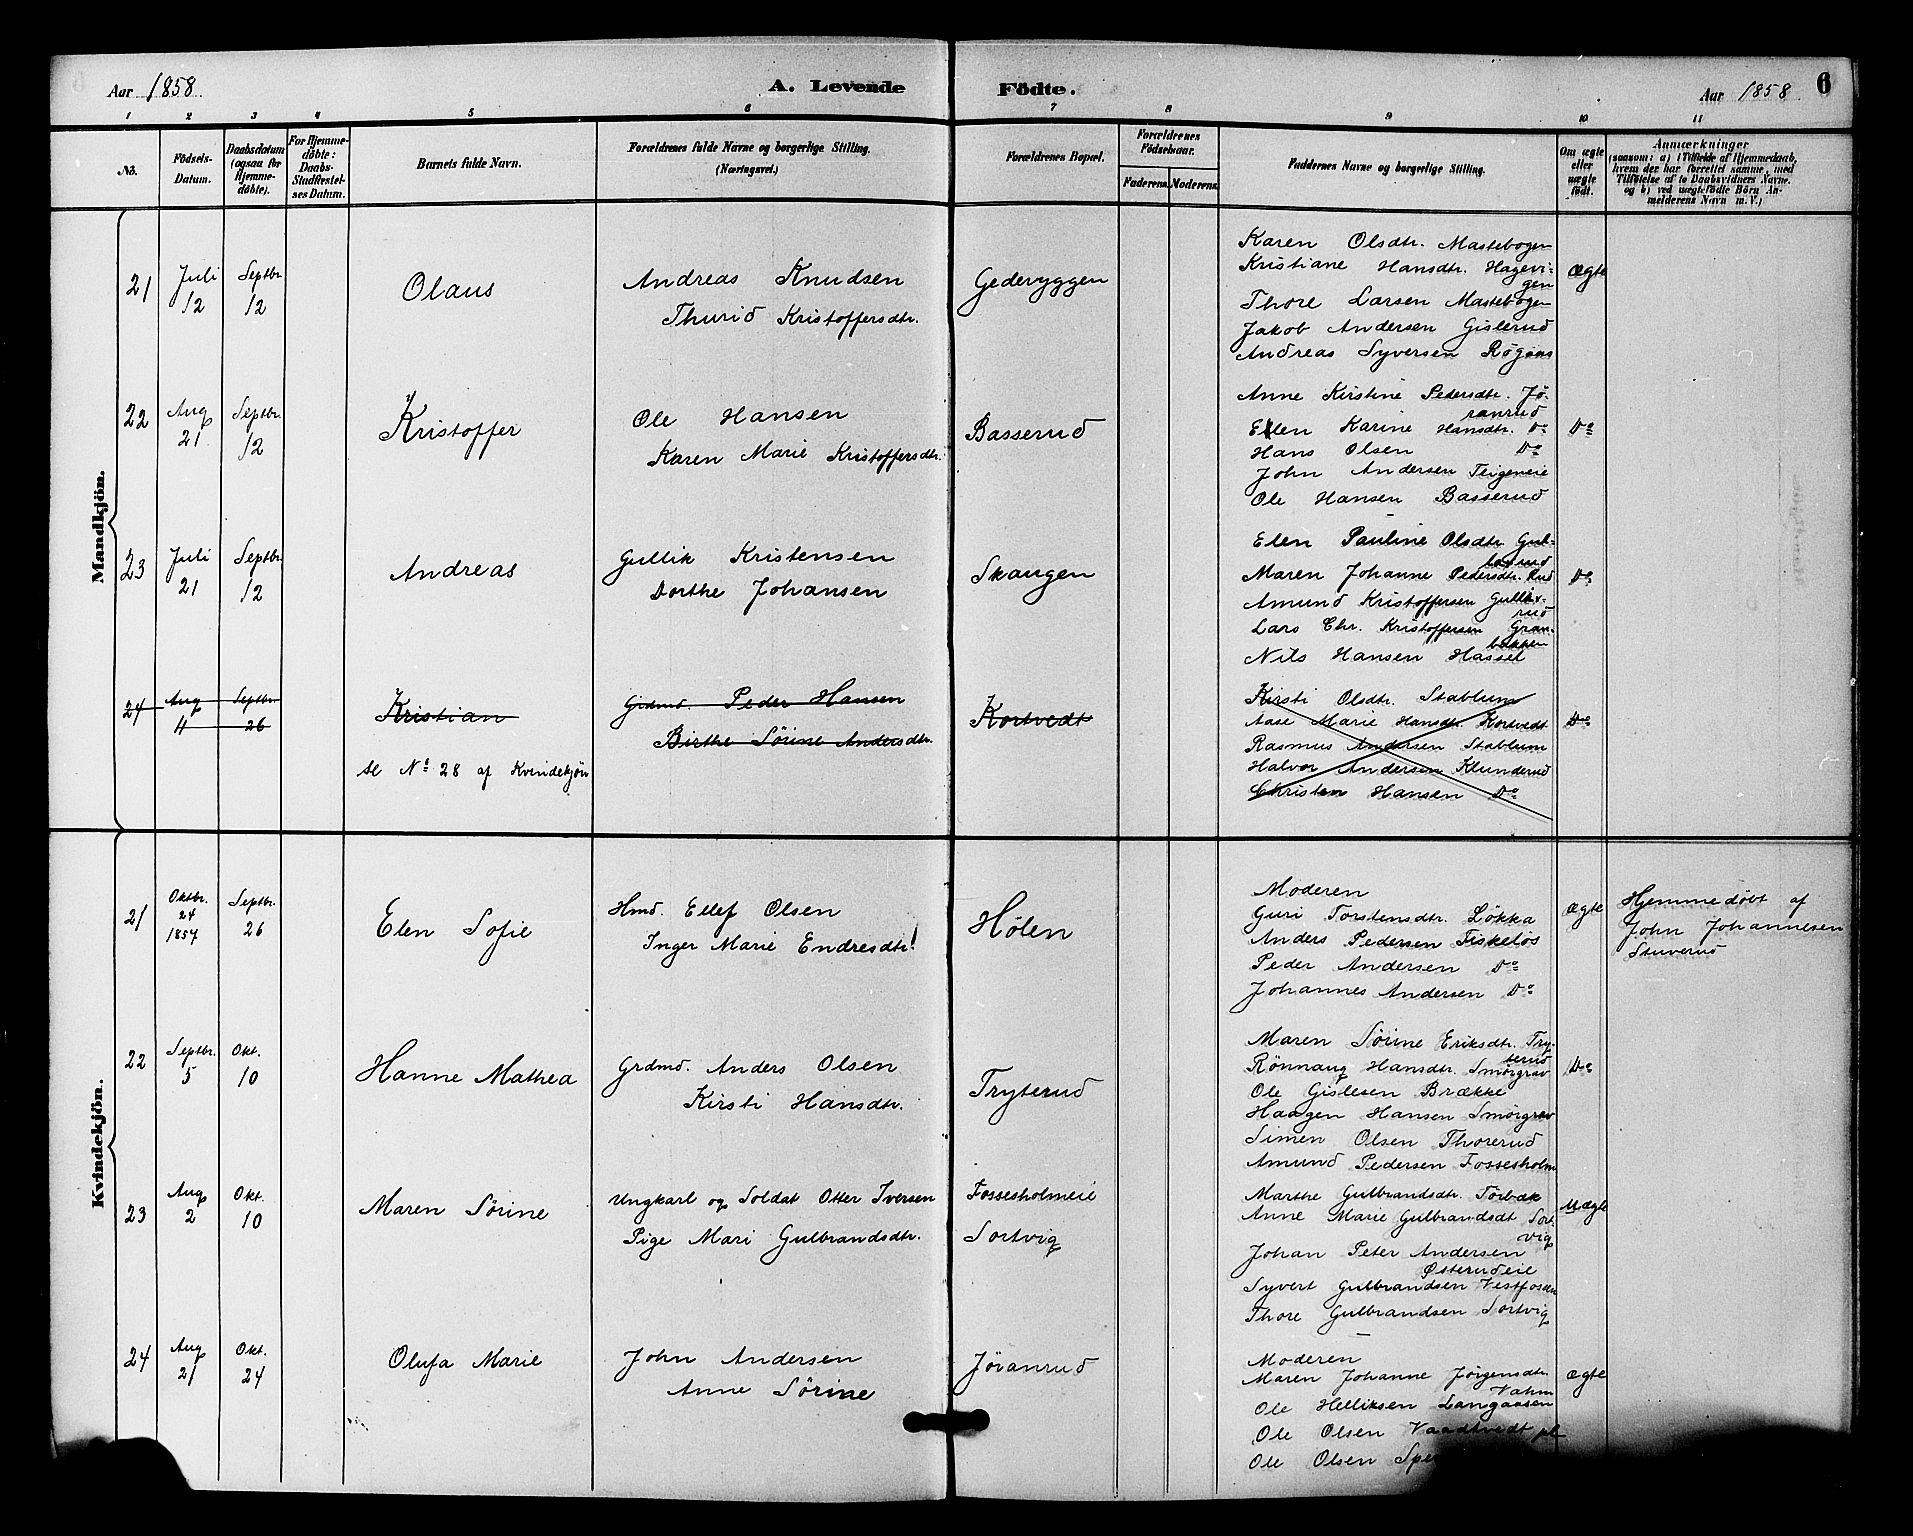 Aar 1858
A. Levende Födte.
Aar 1858
6
1 2 3 4 5 6 7 8 9 10 11
Nô.
Födsels-Datum.
Daabsdatum (ogsaa for Hjemme-döbte).
For Hjemme-döbte: Daabs-Stadfæstel-ses Datum.
Barnets fulde Navn.
Forældrenes fulde Navne og borgerlige Stilling. (Næringsvei.)
Forældrenes Bopæl.
Forældrenes Födselsaar.
Faderens. Moderens.
Faddernes Navne og borgerlige Stilling.
Om ægte eller uægte födt.
Anmærkninger
(saasom: a) i Tilfælde af Hjemmedaab, hvem der har forrettet samme, med Tilföielse af to Daabsvidners Navne, og b) ved uægtefödte Börn An-melderens Navn m. V.)
Mandkjön.
21 Juli 12 Septbr 12
Olaus
Andreas Knudsen
Thurid Kristoffersdtr.
Gederyggen
Karen Olsdtr. Mastebogen
Kristiane Hansdtr. Hagevi-
gen
Thore Larsen Mastebogen
Jakob Andersen Gislerud
Andreas Syversen Røgaas
Ægte
22 Aug 21 Septbr. 12
Kristoffer
Ole Hansen
Karen Marie Kristoffersdtr.
Basserud
Anne Kirstine Pedersdtr. Jö-
ranrud
Ellen Karine Hansdtr. Do
Hans Olsen Do
John Andersen Teigeneie
Ole Hansen Basserud
Do
23 Juli 21 Septbr. 12
Andreas
Gullik Kristensen
Dorthe Johansen
Skaugen
Elen Pauline Olsdtr Gul-
Maren Johanne Pedersdtr. Rud
Amund Kristoffersen Gulliks-
rud
Lars Chr. Kristoffersen Gran-
bakken
Nils Hansen Hassel
Do
24 Aug 4 Septbr. 26
Kristian
Grdmd. Peder Hansen
Birthe Sörine Andersdtr.
Kortvedt
se No 28 af Kvindekjön
Kirsti Olsdtr. Stablum
Aase Marie Hansdtr. Kortvedt
Rasmus Andersen Stablum
Halvor Andersen Klunderud
Christen Hansen Do
Do
Kvindekjön.
21 Oktbr. 24 1857 Septbr. 26
Elen Sofie
Hmd. Ellef Olsen
Inger Marie Endresdtr.
Hölen
Moderen
Guri Torstensdtr. Lökka
Anders Pedersen Fiskelös
Peder Andersen Do
Johannes Andersen Do
Ægte
Hjemmedöbt af
John Johannesen
Stuverud
22 Septbr. 5 Okt. 10
Hanne Mathea
Grdmd. Anders Olsen
Kirsti Hansdtr.
Tryterud
Maren Sörine Eriksdtr. Try-
terud
Rönnaug Hansdtr. Smörgrav
Ole Gislesen Brække
Haagen Hansen Smörgrav
Simen Olsen Thorerud
Amund Pedersen Fossesholm
Do
23 Aug 2 Okt. 10
Maren Sörine
Ungkarl og Soldat Otter Iversen
Pige Mari Gulbrandsdtr.
Fossesholmeie
Sortvig
Marthe Gulbrandsdtr. Törbæk
Anne Marie Gulbrandsdt Sort-
vig
Johan Peter Andersen
Østerudeie
Syvert Gulbrandsen Vestfossen
Thore Gulbrandsen Sortvig
Uægte
24 Aug 21 Okt. 24
Olufa Marie
John Andersen
Anne Sörine
Jöranrud
Moderen
Maren Johanne Jörgensdtr.
Ole Helliksen Langaasen
Ole Olsen Vaadtvedt
Ole Olsen
Ægte